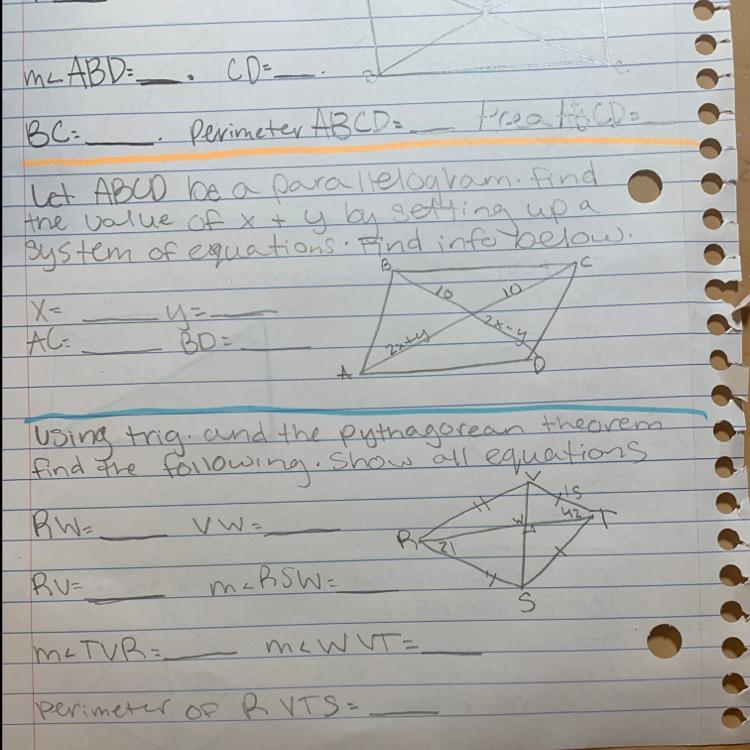 m<ABD=___. CD=___.
BC=____. Perimeter ABCD=___ Area
Let ABCD be a parallelogram. Find
the value of x + y by setting up a
system of equations. Find info below.
B C
10 10
X= ____ y= ____
AC= ____ BD= ____
2x+y 2x-y
A D
Using trig. and the pythagorean theorem
find the following. Show all equations
V
15
RW= ____ VW= ____
W 42 T
R 21
RV= ____ m<RSW= ____
S
m<TVR= ____ m<WVT= ____
perimeter of RVTS= ____